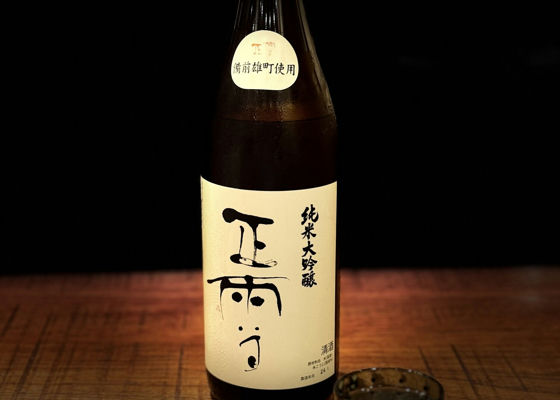 備前雄町使用
純米大吟醸
正雪
清酒